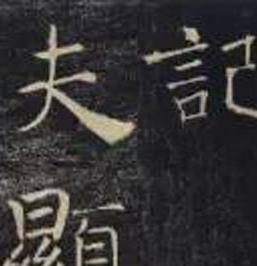 記
夫顯